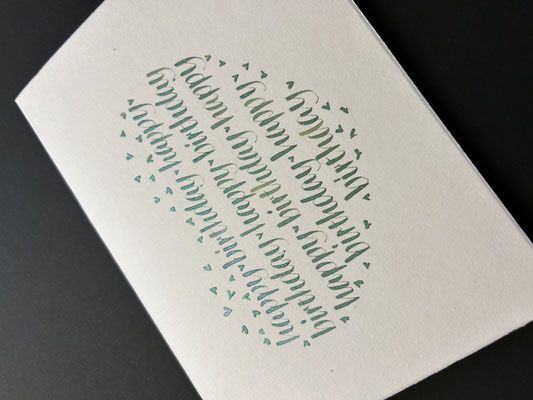 happy birthday happy
birthday happy birthday
happy birthday happy
birthday happy
birthday